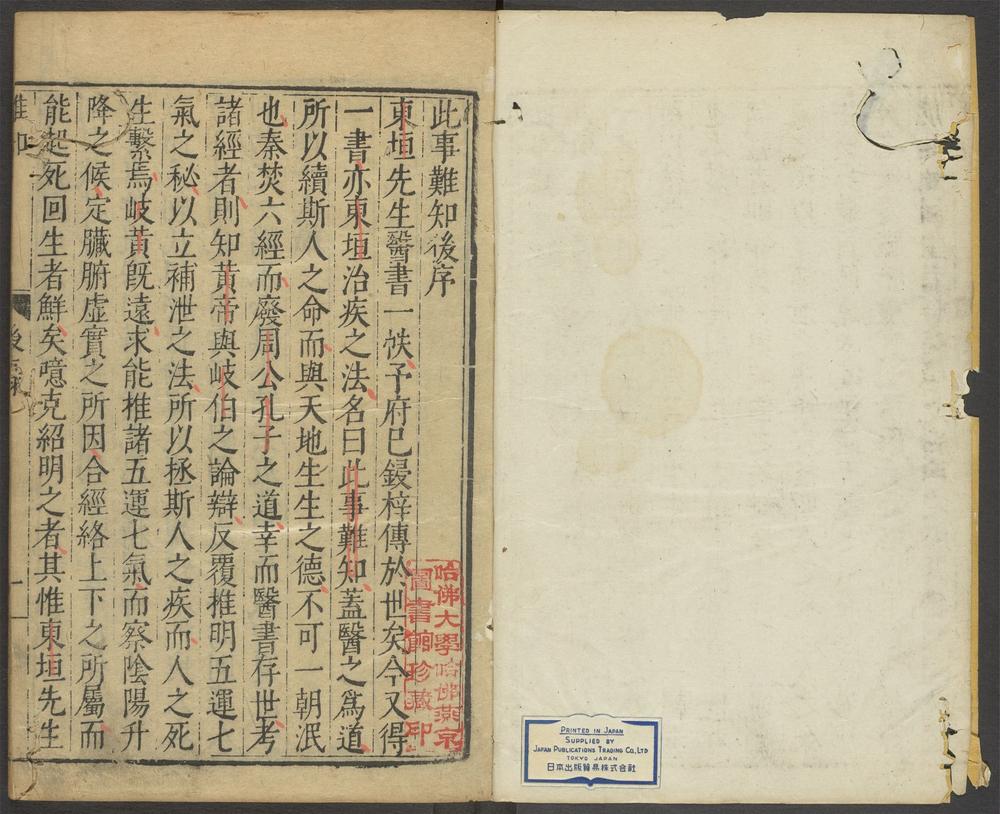 此事難知後序
東垣先生醫書一帙予府已鋟梓傳於世矣今又得
一書亦東垣治疾之法名曰此事難知蓋醫之爲道
所以續斯人之命而與天地生生之德不可一朝泯
也秦焚六經而廢周公孔子之道幸而醫書存世考
諸經者則知黃帝與岐伯之論辯反覆推明五運七
氣之秘以立補泄之法所以拯斯人之疾而人之死
生繫焉岐黃旣遠求能推諸五運七氣而察陰陽升
降之候定臟腑虛實之所因合經絡上下之所屬而
能起死回生者鮮矣噫克紹明之者其惟東垣先生
後序
一
哈佛大學哈佛燕京
圖書館珍藏印
PRINTED IN JAPAN
SUPPLIED BY
JAPAN PUBLICATIONS TRADING CO., LTD
TOKYO JAPAN
日本出版貿易株式会社